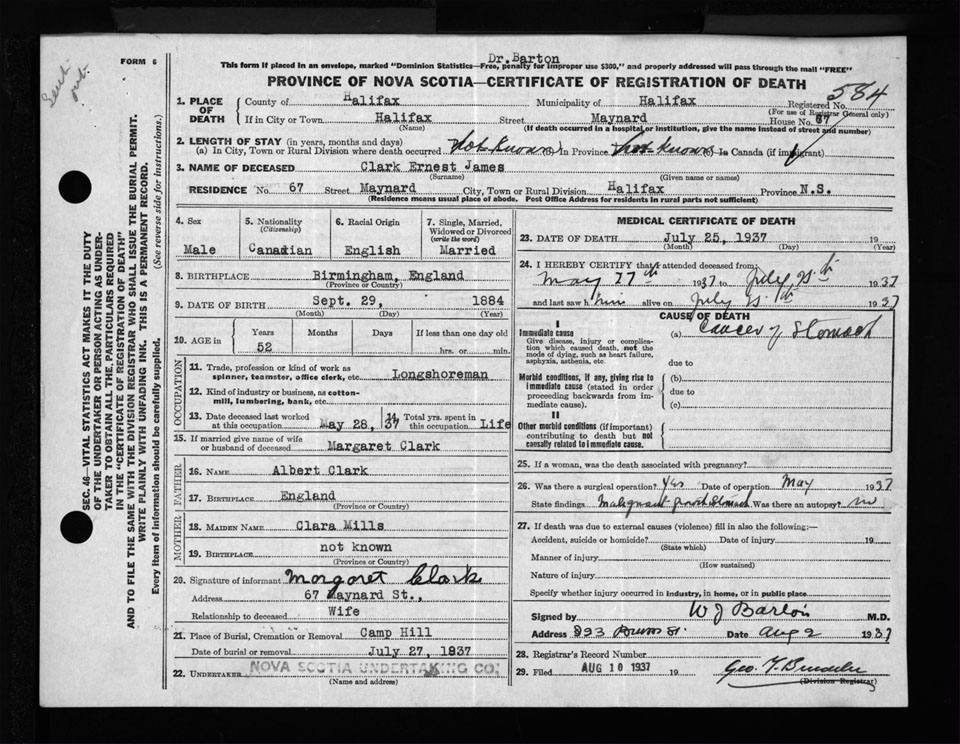 Dr. Barton
FORM 6
This form if placed in an envelope, marked "Dominion Statistics—Free, penalty for improper use $300," and properly addressed will pass through the mail "FREE"
PROVINCE OF NOVA SCOTIA—CERTIFICATE OF REGISTRATION OF DEATH
584
1. PLACE OF DEATH County of Halifax Municipality of Halifax Registered No.
(For use of Registrar General only)
If in City or Town Halifax Street Maynard House No. 67
(Name) (If death occurred in a hospital or institution, give the name instead of street and number)
2. LENGTH OF STAY (in years, months and days)
(a) In City, Town or Rural Division where death occurred Not Known In Province Not Known In Canada (if immigrant)
3. NAME OF DECEASED Clark Ernest James
(Surname) (Given name or names)
RESIDENCE No. 67 Street Maynard City, Town or Rural Division Halifax Province N.S.
(Residence means usual place of abode. Post Office Address for residents in rural parts not sufficient)
4. Sex Male
5. Nationality (Citizenship) Canadian
6. Racial Origin English
7. Single, Married, Widowed or Divorced (write the word) Married
8. BIRTHPLACE Birmingham, England
(Province or Country)
9. DATE OF BIRTH Sept. 29, 1884
(Month) (Day) (Year)
10. AGE in Years Months Days If less than one day old
52 hrs. or min.
OCCUPATION
11. Trade, profession or kind of work as
spinner, teamster, office clerk, etc. Longshoreman
12. Kind of industry or business, as cotton-
mill, lumbering, bank, etc.
13. Date deceased last worked at this occupation May 28, 37
14. Total yrs. spent in this occupation Life
15. If married give name of wife
or husband of deceased Margaret Clark
FATHER
16. NAME Albert Clark
17. BIRTHPLACE England
(Province or Country)
MOTHER
18. MAIDEN NAME Clara Mills
19. BIRTHPLACE not known
(Province or Country)
20. Signature of informant Margaret Clark
Address 67 Maynard St.,
Relationship to deceased Wife
21. Place of Burial, Cremation or Removal Camp Hill
Date of burial or removal July 27, 1937
22. UNDERTAKER NOVA SCOTIA UNDERTAKING CO.
(Name and address)
MEDICAL CERTIFICATE OF DEATH
23. DATE OF DEATH July 25, 1937 19
(Month) (Day) (Year)
24. I HEREBY CERTIFY that I attended deceased from
May 27th 1937 to July 25th 1937
and last saw him alive on July 25th 1937
CAUSE OF DEATH
I
Immediate cause (a) Cancer of Stomach
Give disease, injury or complica-
tion which caused death, not the
mode of dying, such as heart failure,
asphyxia, asthenia, etc. due to
Morbid conditions, if any, giving rise to (b)
immediate cause (stated in order due to
proceeding backwards from im-
mediate cause). (c)
II
Other morbid conditions (if important)
contributing to death but not
causally related to immediate cause.
25. If a woman, was the death associated with pregnancy?
26. Was there a surgical operation? Yes Date of operation May 1937
State findings Malignant growth Stomach Was there an autopsy? no
27. If death was due to external causes (violence) fill in also the following:—
Accident, suicide or homicide? Date of injury 19
(State which)
Manner of injury
(How sustained)
Nature of injury
Specify whether injury occurred in industry, in home, or in public place
Signed by W J Barton M.D.
Address 393 St. Date Aug 2 1937
28. Registrar's Record Number
29. Filed AUG 10 1937 19
(Division Registrar)
SEC. 46—VITAL STATISTICS ACT MAKES IT THE DUTY
OF THE UNDERTAKER OR PERSON ACTING AS UNDER-
TAKER TO OBTAIN ALL THE PARTICULARS REQUIRED
IN THE "CERTIFICATE OF REGISTRATION OF DEATH"
AND TO FILE THE SAME WITH THE DIVISION REGISTRAR WHO SHALL ISSUE THE BURIAL PERMIT.
WRITE PLAINLY WITH UNFADING INK. THIS IS A PERMANENT RECORD.
Every item of information should be carefully supplied. (See reverse side for instructions.)